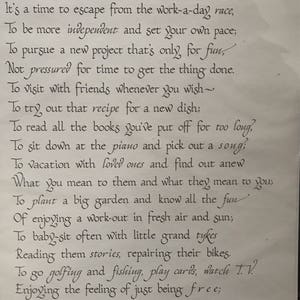 It's a time to escape from the work-a-day race,
To be more independent and set your own pace;
To pursue a new project that's only for fun,
Not pressured for time to get the thing done.
To visit with friends whenever you wish~
To try out that recipe for a new dish;
To read all the books you've put off for too long,
To sit down at the piano and pick out a song;
To vacation with loved ones and find out anew
What you mean to them and what they mean to you;
To plant a big garden and know all the fun
Of enjoying a work-out in fresh air and sun;
To baby-sit often with little grand tykes
Reading them stories, repairing their bikes.
To go golfing and fishing, play cards, watch T.V.
Enjoying the feeling of just being free;